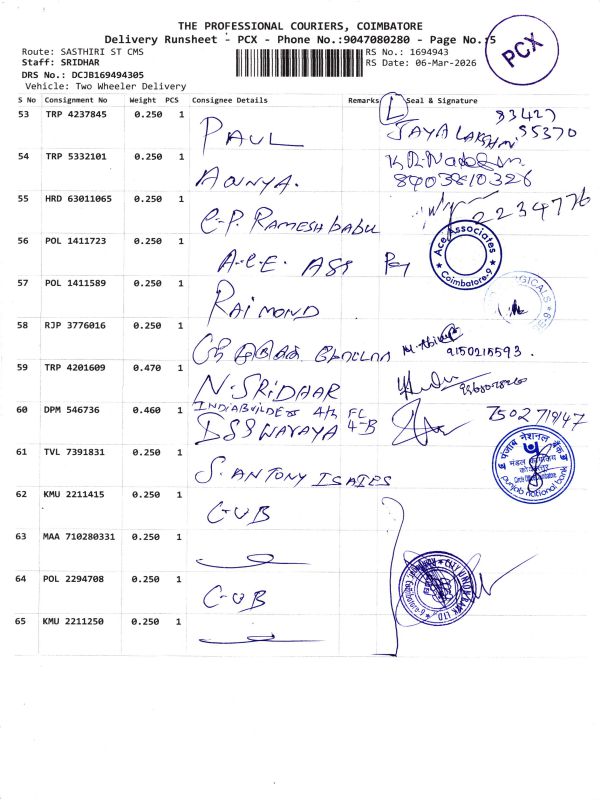 THE PROFESSIONAL COURIERS, COIMBATORE
Delivery Runsheet - PCX - Phone No.:9047080280 - Page No.:5
Route: SASTHIRI ST CMS
RS No.: 1694943
Staff: SRIDHAR
RS Date: 06-Mar-2026
DRS No.: DCJB169494305
Vehicle: Two Wheeler Delivery
PCX
S No Consignment No Weight PCS Consignee Details Remarks Seal & Signature
53 TRP 4237845 0.250 1 PAUL JAYALAKSHMI 83427 55370
54 TRP 5332101 0.250 1 8903810326
55 HRD 63011065 0.250 1 C-P. RAMESH babu 2234776
56 POL 1411723 0.250 1 A-C-E. ASS Ace Associates Coimbatore-9
57 POL 1411589 0.250 1 RAIMOND
58 RJP 3776016 0.250 1 9150215593.
59 TRP 4201609 0.470 1 N-SRIDHAR
60 DPM 546736 0.460 1 INDIABUILDERS 4/2 FL
DSS WARAYA 4-B
61 TVL 7391831 0.250 1 S. ANTONY ISAIES
पंजाब नैशनल बैंक punjab national bank
62 KMU 2211415 0.250 1 CUB
63 MAA 710280331 0.250 1
64 POL 2294708 0.250 1 CUB CITY UNION BANK LTD
65 KMU 2211250 0.250 1